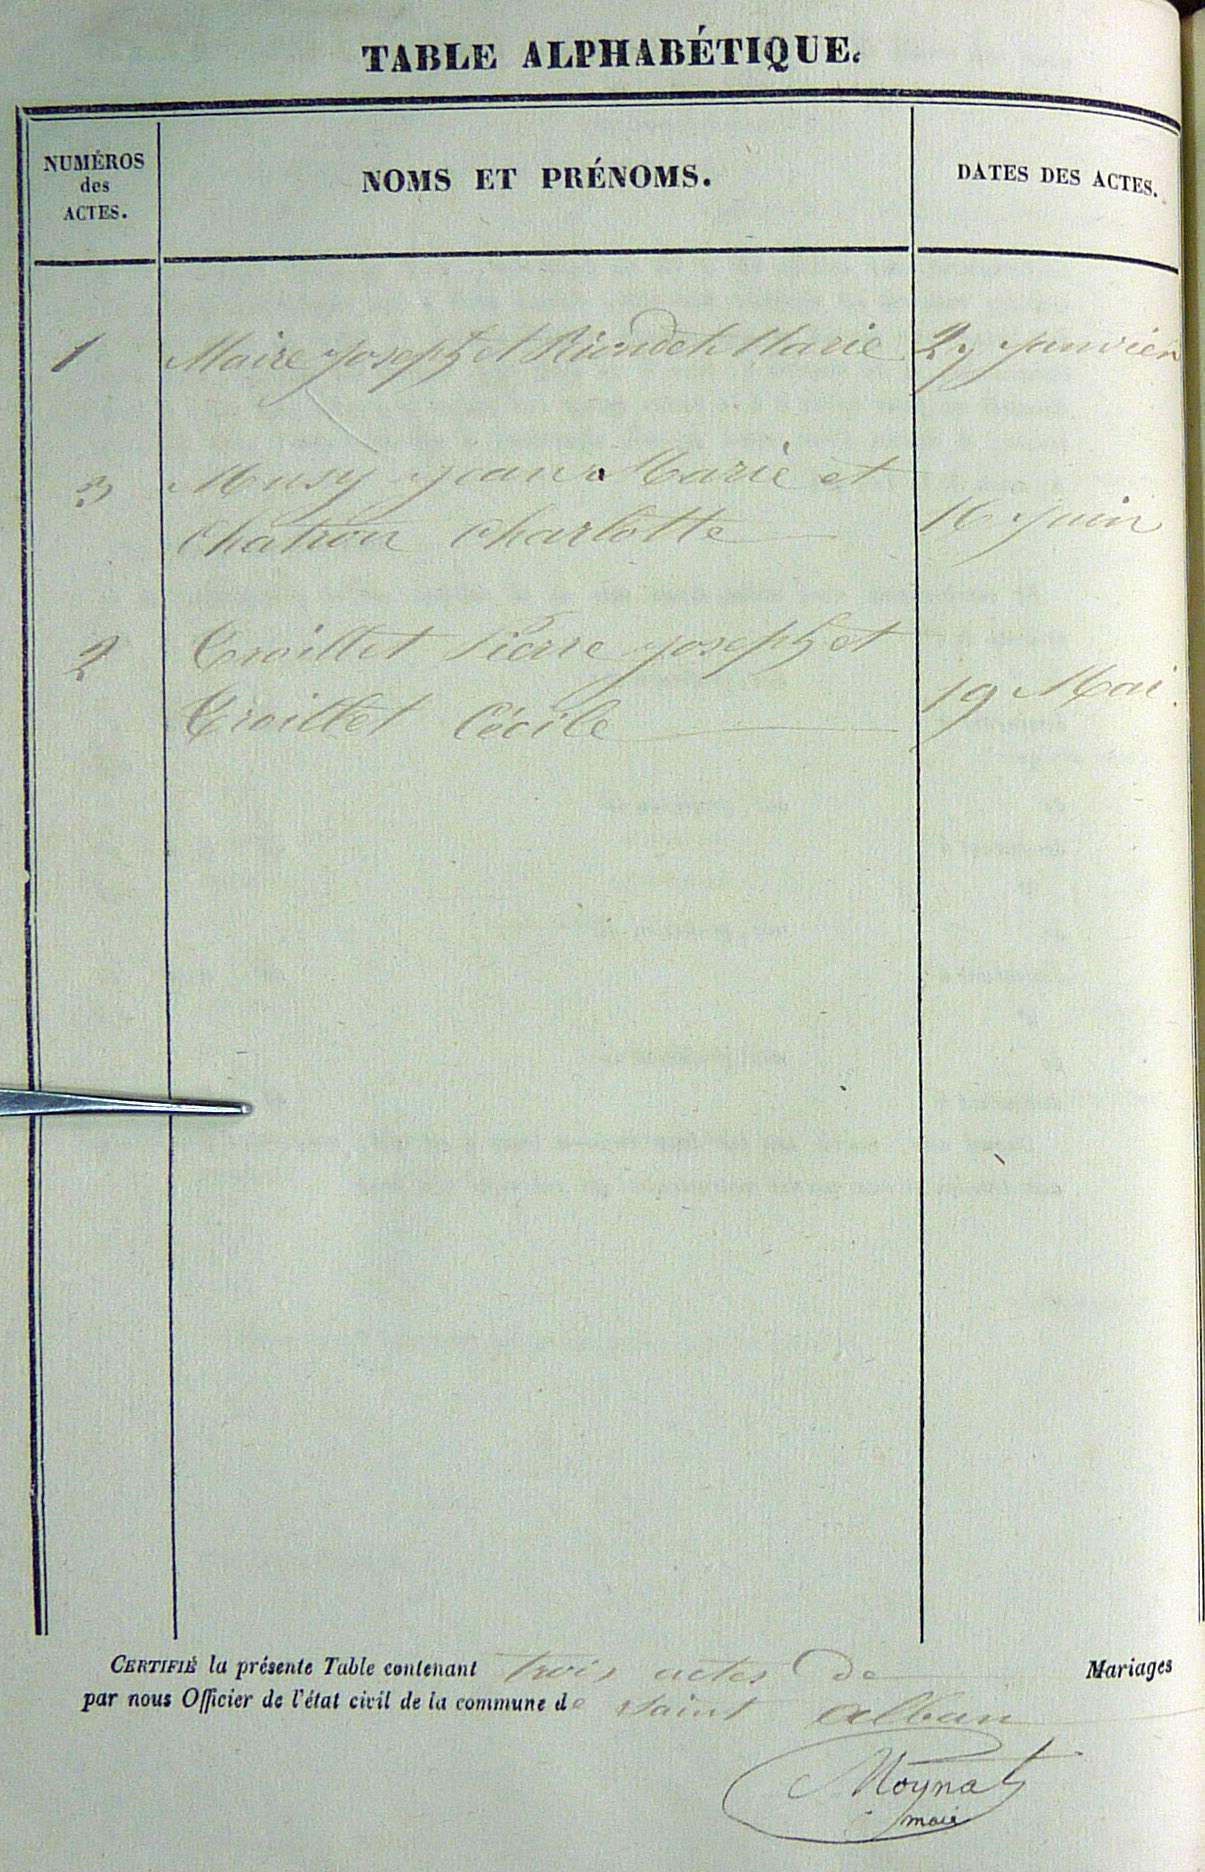 TABLE ALPHABÉTIQUE.
NUMÉROS
des
ACTES.
NOMS ET PRÉNOMS.
DATES DES ACTES.
1 Maire Joseph et Riondet Marie 27 Janvier
3 Musy Jean Marie et
Chatron Charlotte 16 Juin
2 Troillet Pierre Joseph et
Troillet Cécile 19 Mai.
CERTIFIÉ la présente Table contenant trois actes de Mariages
par nous Officier de l'état civil de la commune de Saint Alban
Moynat
maire